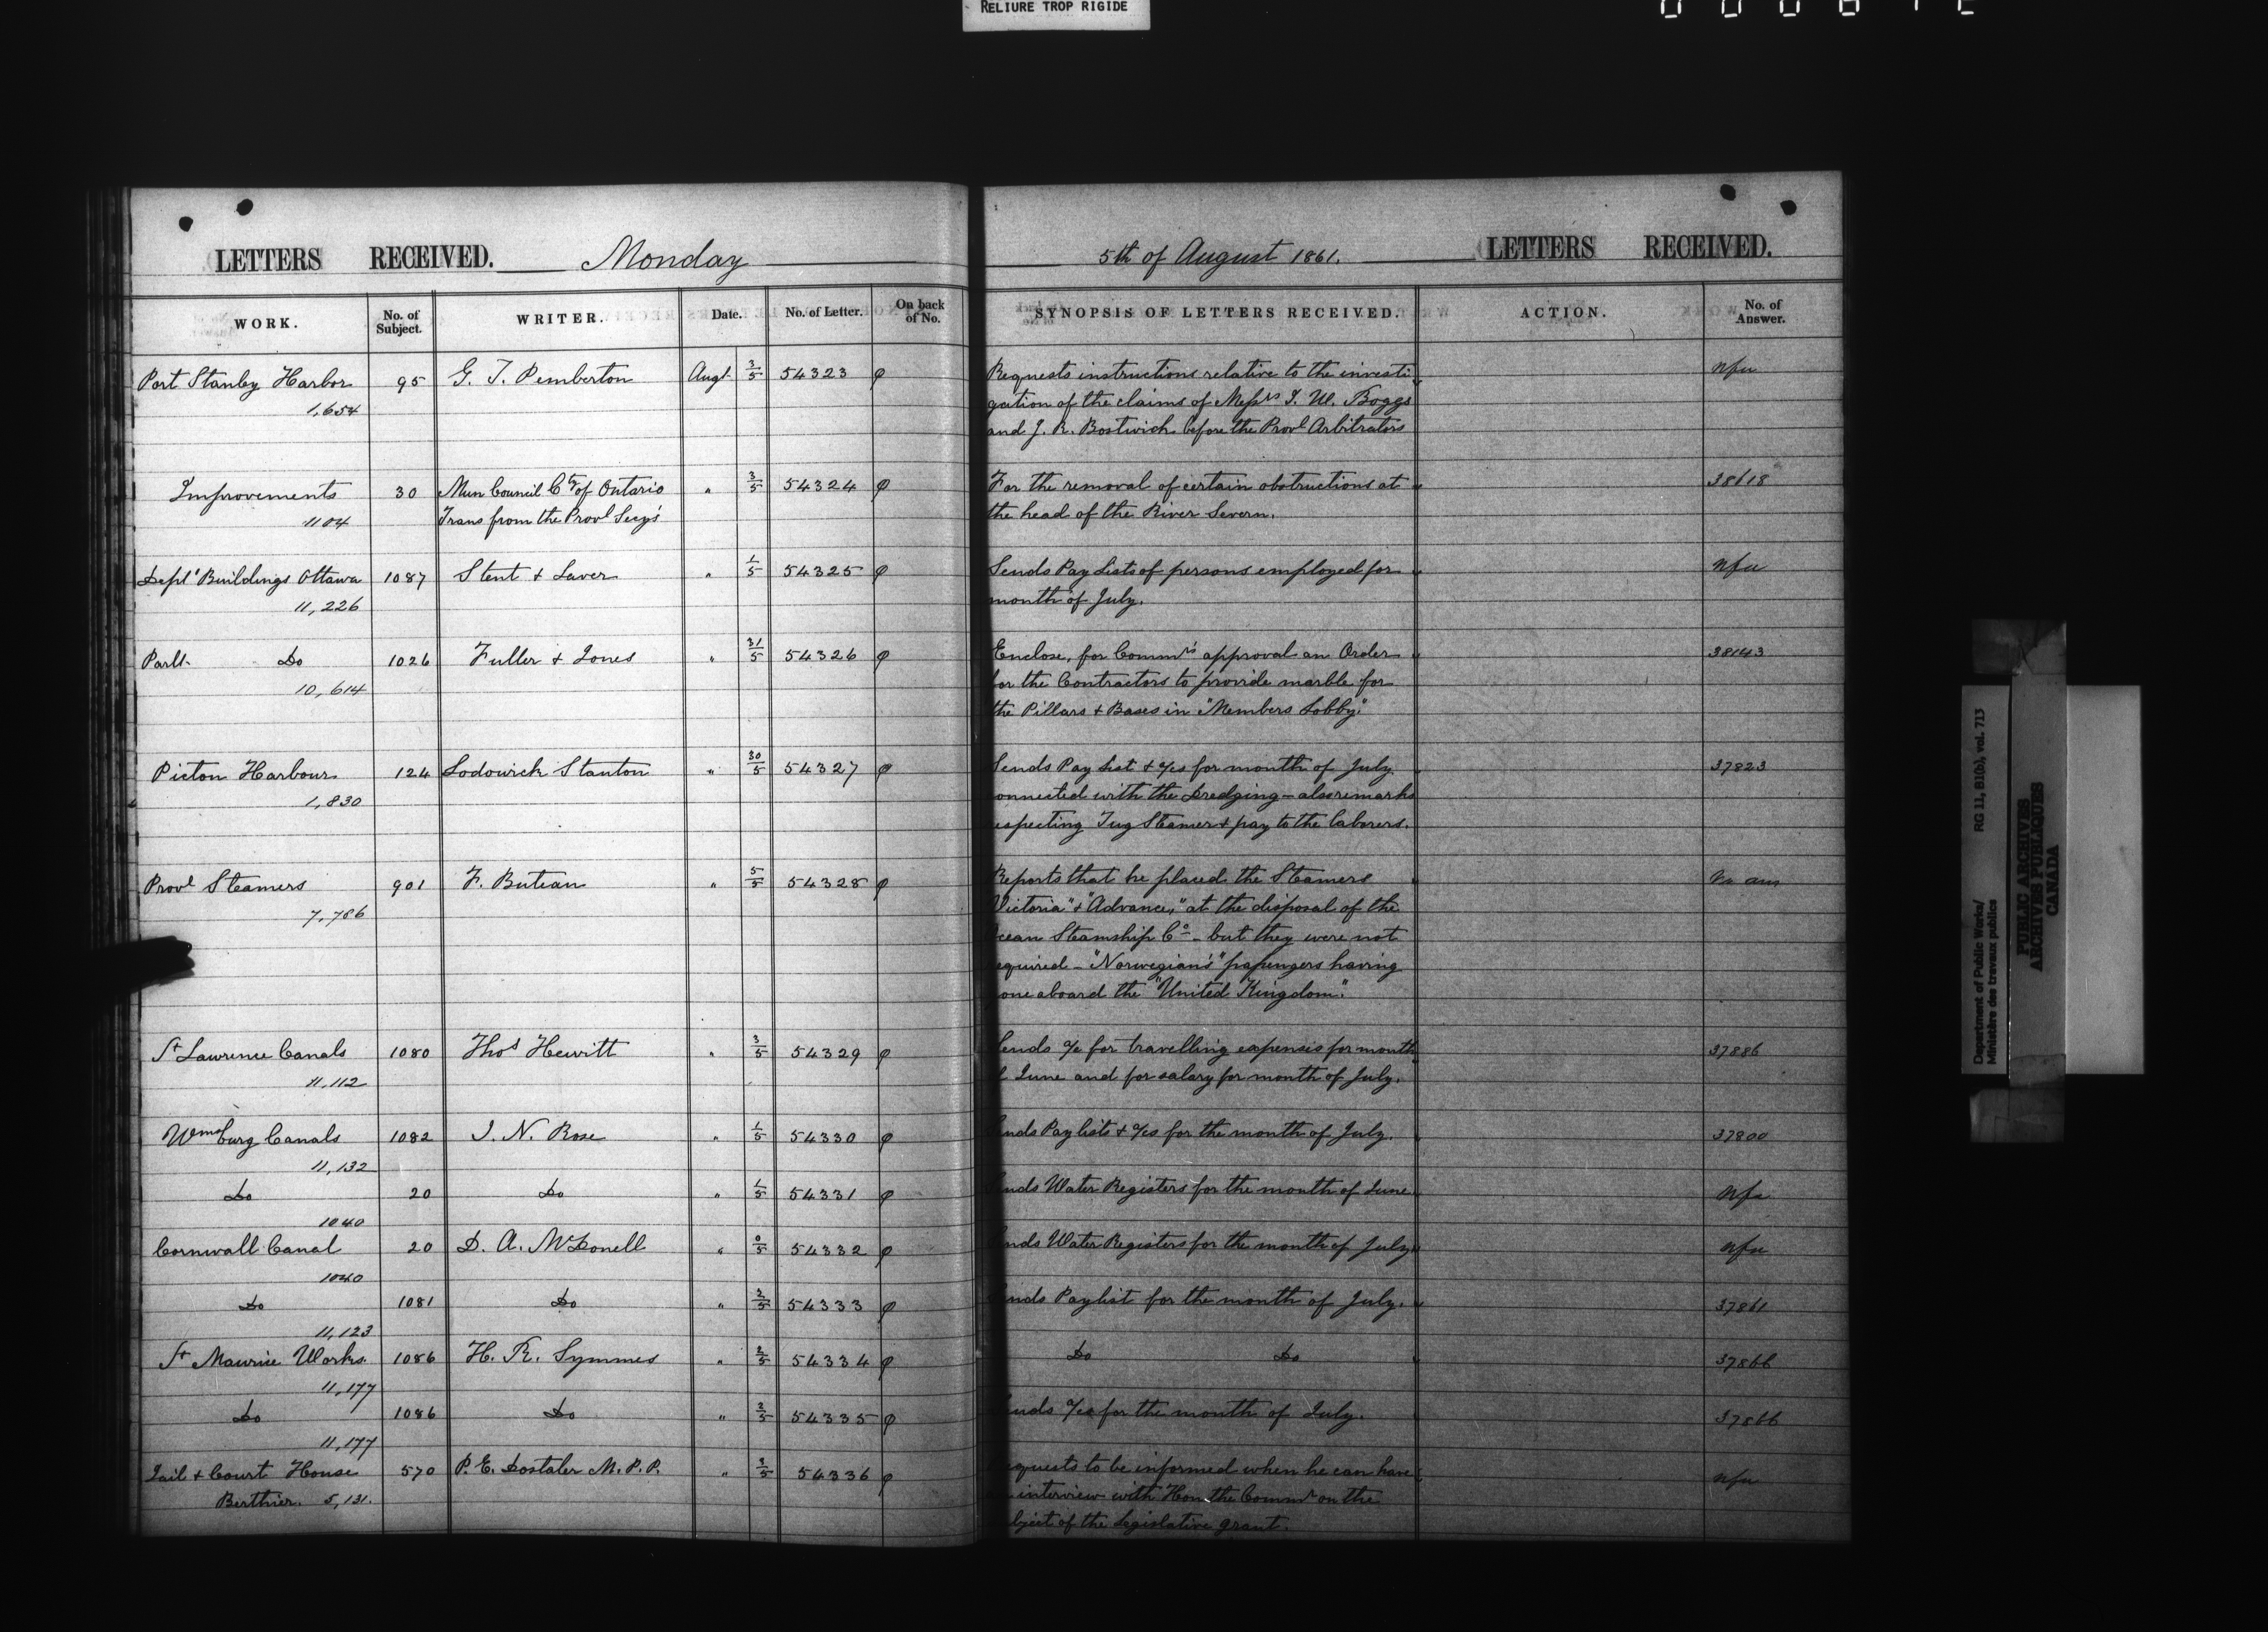 RELIURE TROP RIGIDE
LETTERS RECEIVED. Monday
WORK. No. of Subject. WRITER. Date. No. of Letter. On back of No.
Port Stanley Harbor 95 G. T. Pemberton Augt 3/5 54323 φ
1,654
Improvements 30 Mun Council Cty of Ontario " 3/5 54324 φ
1104 Trans from the Provl Secy's
Deptl Buildings Ottawa 1087 Stent & Laver " 1/5 54325 φ
11,226
Parlt. Do 1026 Fuller & Jones " 31/5 54326 φ
10,614
Picton Harbour 124 Lodowick Stanton " 30/5 54327 φ
1,830
Provl Steamers 901 F. Buteau " 5/5 54328 φ
7,786
St Lawrence Canals 1080 Thos Hewitt " 3/5 54329 φ
11,112
Wmsburg Canals 1082 I. N. Rose " 1/5 54330 φ
11,132
Do 20 Do " 1/5 54331 φ
1040
Cornwall Canal 20 D. A. McDonell " 0/5 54332 φ
1040
Do 1081 Do " 2/5 54333 φ
11,123
St Maurice Works. 1086 H. R. Symmes " 2/5 54334 φ
11,177
Do 1086 Do " 2/5 54335 φ
11,177
Jail & Court House 570 P. E. Dostaler M.P.P. " 3/5 54336 φ
Berthier. 5,131.
5th of August 1861. LETTERS RECEIVED.
SYNOPSIS OF LETTERS RECEIVED. ACTION. No. of Answer.
Requests instructions relative to the investi Nfa
gation of the claims of Messrs I. W. Boggs
and J. R. Bostwick before the Provl Arbitrators
For the removal of certain obstructions at 38618
the head of the River Severn.
Sends Pay Lists of persons employed for Nfa
month of July.
Enclose, for Commrs approval an Order 38143
for the Contractors to provide marble for
the Pillars & Bases in "Members Lobby."
Sends Pay List & a/cs for month of July 37823
connected with the Dredging – also remarks
respecting Tug Steamer & pay to the laborers.
Reports that he placed the Steamers No ans
Victoria" & "Advance," at the disposal of the
Ocean Steamship Co – but they were not
required – "Norwegian's" passengers having
gone aboard the "United Kingdom."
Sends a/c for travelling expenses for month 37886
of June and for salary for month of July.
Sends Pay lists & a/cs for the month of July. 37800
Sends Water Registers for the month of June Nfa
Sends Water Registers for the month of July Nfa
Sends Paylist for the month of July. 37861
Do Do 37866
Sends a/cs for the month of July. 37866
Requests to be informed when he can have Nfa
an interview with Hon the Commr on the
subject of the Legislative grant.
Department of Public Works/ RG 11, B1(b), vol. 713
Ministère des travaux publics
PUBLIC ARCHIVES
ARCHIVES PUBLIQUES
CANADA